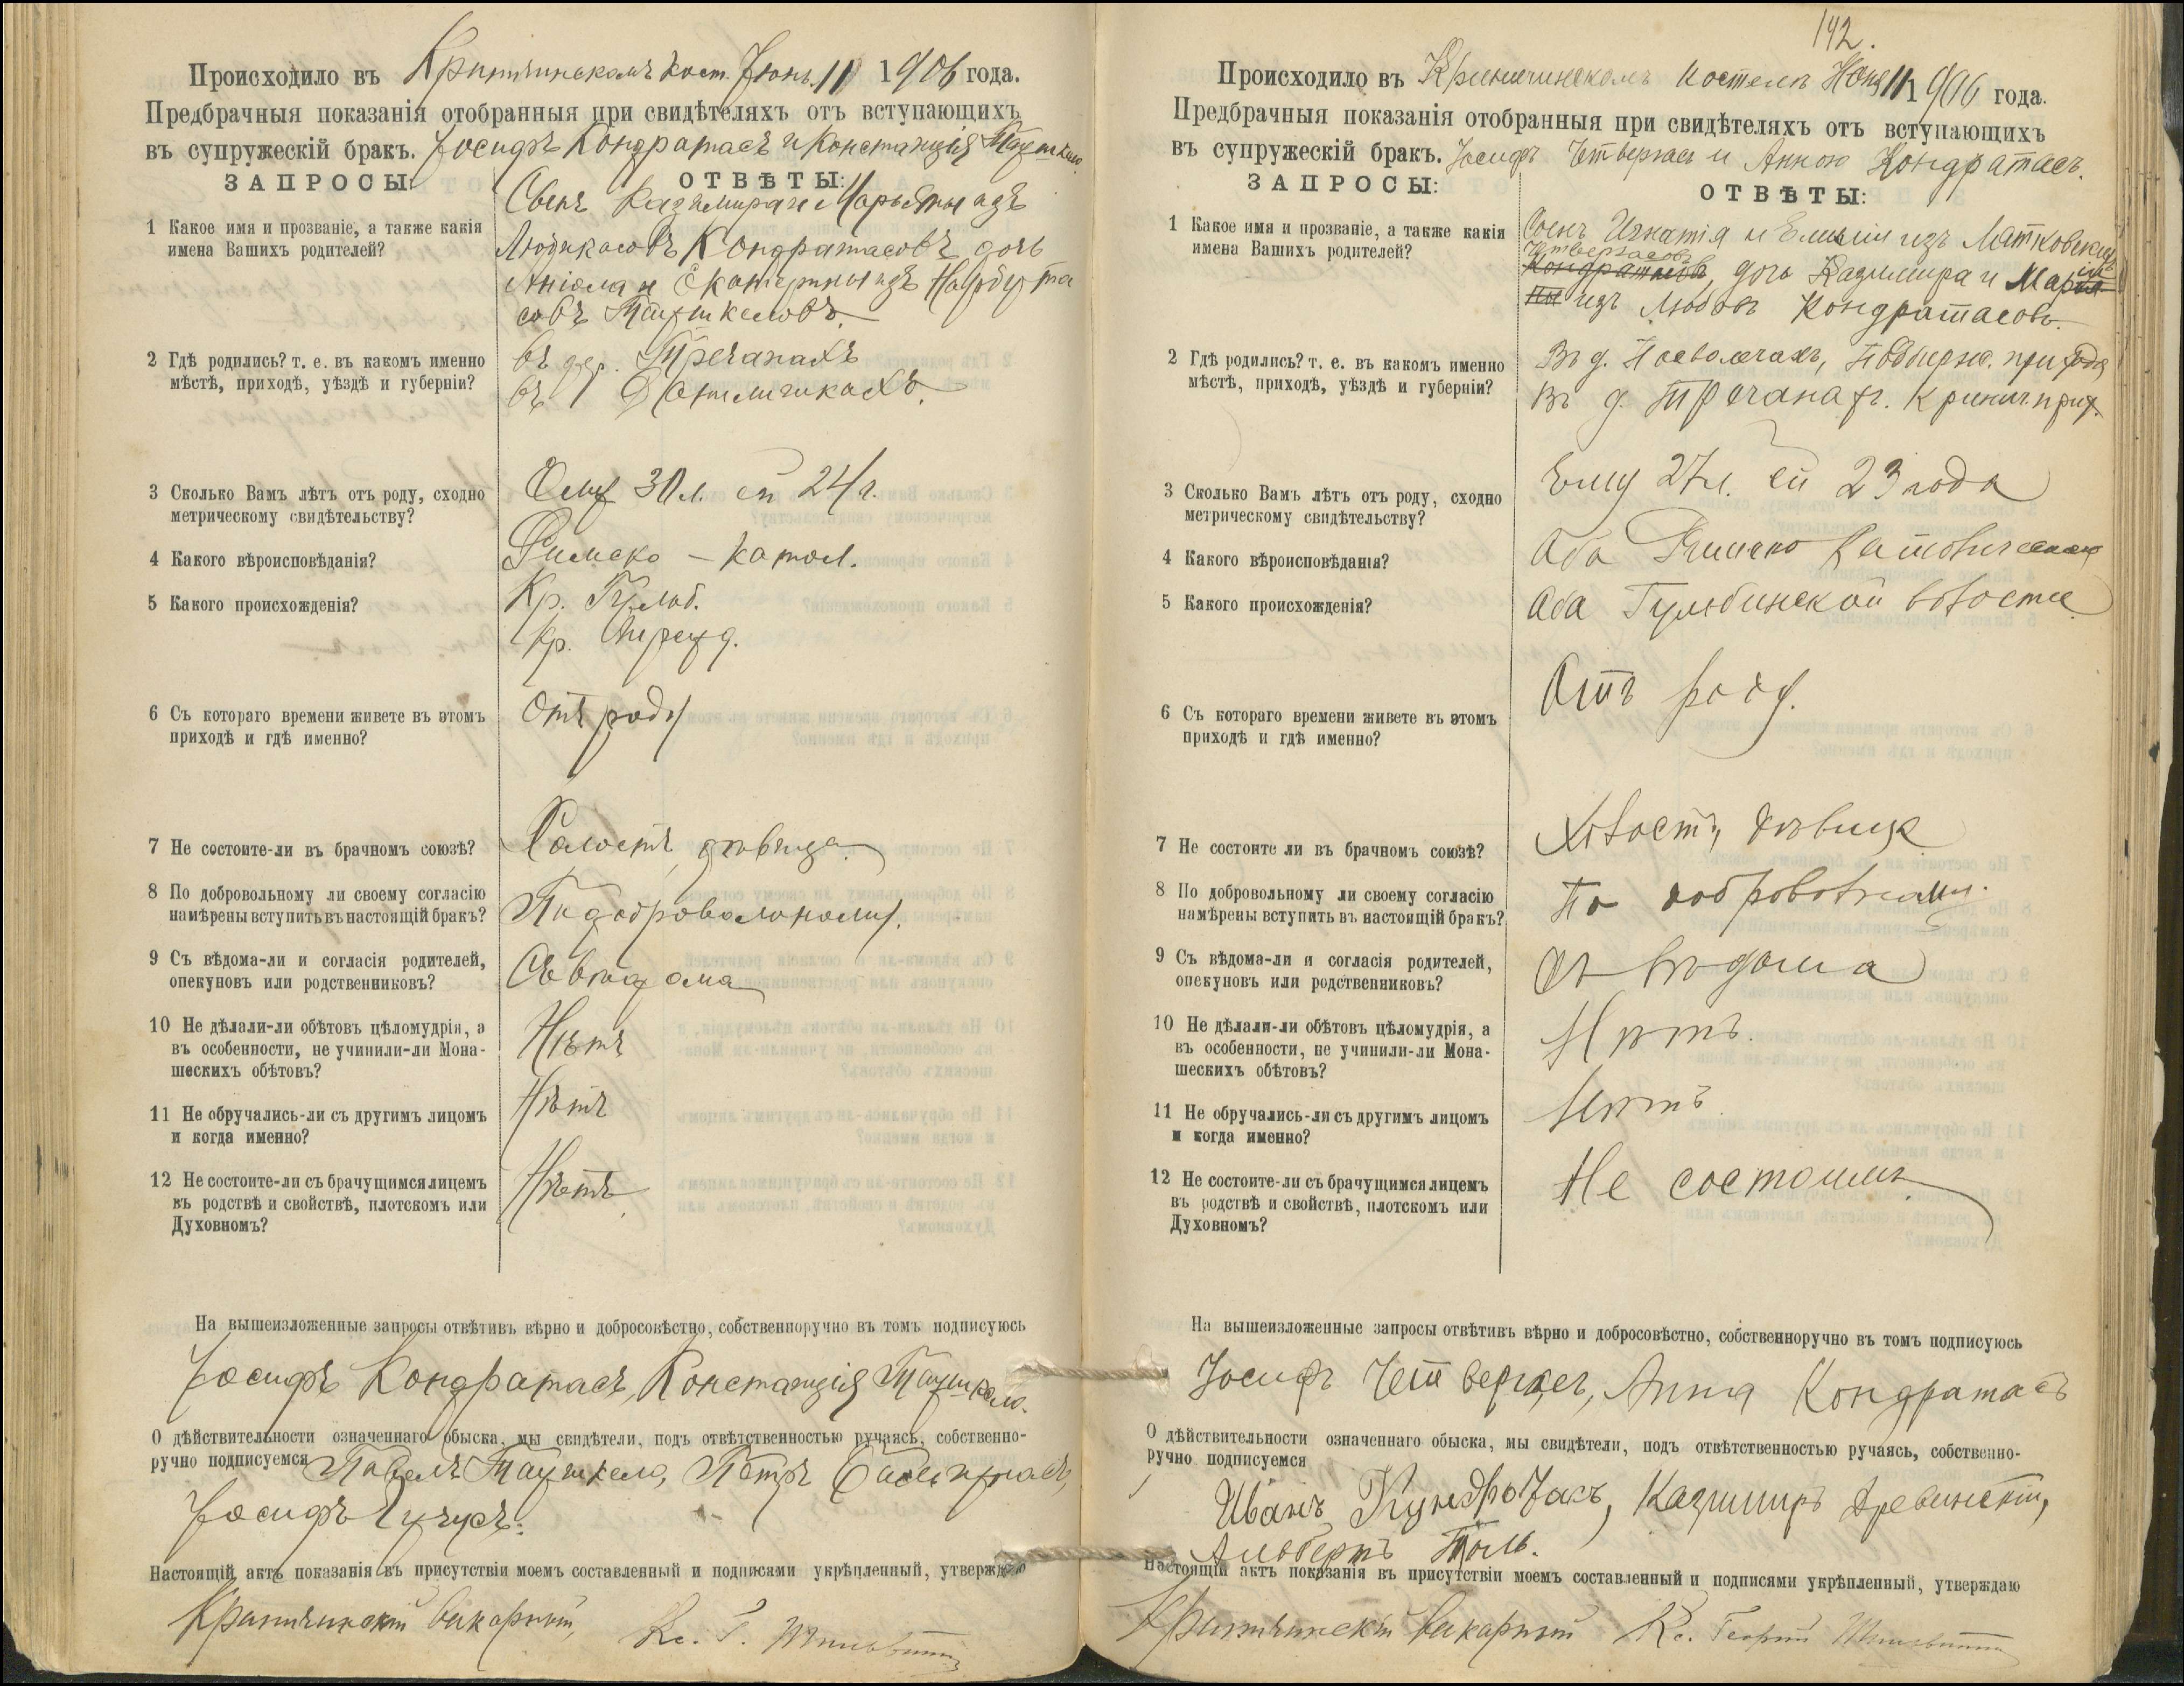 Происходило въ Криничинскомъ кост. Іюнь 11 1906 года.
Предбрачныя показанія отобранныя при свидѣтеляхъ отъ вступающихъ
въ супружескій бракъ. Іосифъ Кондратасъ и Констанція
ЗАПРОСЫ:
ОТВѢТЫ:
1 Какое имя и прозваніе, а также какія
имена Вашихъ родителей?
Сынъ Казимира и Марьяны изъ
Кондратасовъ дочь
совъ
2 Гдѣ родились? т. е. въ какомъ именно
мѣстѣ, приходѣ, уѣздѣ и губерніи?
въ дер. Тречанахъ
въ
3 Сколько Вамъ лѣтъ отъ роду, сходно
метрическому свидѣтельству?
Ему 30 л. ей 24 г.
4 Какого вѣроисповѣданія?
Римско – катол.
5 Какого происхожденія?
Кр. Гульб.
Кр.
6 Съ котораго времени живете въ этомъ
приходѣ и гдѣ именно?
Отъ роду
7 Не состоите-ли въ брачномъ союзѣ?
Холостъ, дѣвица.
8 По добровольному ли своему согласію
намѣрены вступить въ настоящій бракъ?
По добровольному.
9 Съ вѣдома-ли и согласія родителей,
опекуновъ или родственниковъ?
Съ вѣдома
10 Не дѣлали-ли обѣтовъ цѣломудрія, а
въ особенности, не учинили-ли Мона-
шескихъ обѣтовъ?
Нѣтъ
11 Не обручались-ли съ другимъ лицомъ
и когда именно?
Нѣтъ
12 Не состоите-ли съ брачущимся лицемъ
въ родствѣ и свойствѣ, плотскомъ или
Духовномъ?
Нѣтъ
На вышеизложенные запросы отвѣтивъ вѣрно и добросовѣстно, собственноручно въ томъ подписуюсь
Іосифъ Кондратасъ, Констанція
О дѣйствительности означеннаго обыска, мы свидѣтели, подъ отвѣтственностью ручаясь, собственно-
ручно подписуемся Павелъ Петръ
Іосифъ
Настоящій актъ показанія въ присутствіи моемъ составленный и подписями укрѣпленный, утверждаю
Криничинскій викарный, Кс. Г.
142.
Происходило въ Криничинскомъ костелѣ Іюня 11 1906 года.
Предбрачныя показанія отобранныя при свидѣтеляхъ отъ вступающихъ
въ супружескій бракъ. Іосифъ Четвергасъ и Анною Кондратасъ.
ЗАПРОСЫ:
ОТВѢТЫ:
1 Какое имя и прозваніе, а также какія
имена Вашихъ родителей?
Сынъ Игнатія и Емиліи изъ
Четвергасовъ
Кондратасовъ, дочь Казимира и Маріи
ны изъ Кондратасовъ.
2 Гдѣ родились? т. е. въ какомъ именно
мѣстѣ, приходѣ, уѣздѣ и губерніи?
Въ д. прихода
въ д. Тречанахъ. Кринич. прих.
3 Сколько Вамъ лѣтъ отъ роду, сходно
метрическому свидѣтельству?
Ему 27 л. ей 23 года
4 Какого вѣроисповѣданія?
Оба Римско Католическаго
5 Какого происхожденія?
Оба Гульбинской волости.
6 Съ котораго времени живете въ этомъ
приходѣ и гдѣ именно?
Отъ роду.
7 Не состоите ли въ брачномъ союзѣ?
Холостъ, дѣвица
8 По добровольному ли своему согласію
намѣрены вступить въ настоящій бракъ?
По добровольному.
9 Съ вѣдома-ли и согласія родителей,
опекуновъ или родственниковъ?
Съ вѣдома
10 Не дѣлали-ли обѣтовъ цѣломудрія, а
въ особенности, не учинили-ли Мона-
шескихъ обѣтовъ?
Нѣтъ.
11 Не обручались-ли съ другимъ лицомъ
и когда именно?
Нѣтъ.
12 Не состоите-ли съ брачущимся лицемъ
въ родствѣ и свойствѣ, плотскомъ или
Духовномъ?
Не состоимъ.
На вышеизложенные запросы отвѣтивъ вѣрно и добросовѣстно, собственноручно въ томъ подписуюсь
Іосифъ Четвергасъ, Анна Кондратасъ
О дѣйствительности означеннаго обыска, мы свидѣтели, подъ отвѣтственностью ручаясь, собственно-
ручно подписуемся
Иванъ Кундротасъ, Казимиръ Древинскій,
Альбертъ Толь.
Настоящій актъ показанія въ присутствіи моемъ составленный и подписями укрѣпленный, утверждаю
Криничинскій викарный Кс. Георгій